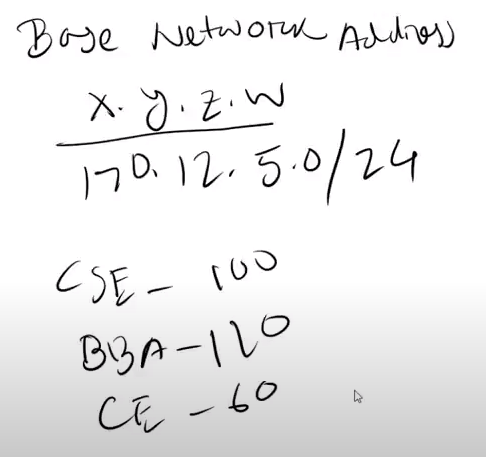 Base Network Address
x. y. z. w
170. 12. 5.0/24
CSE - 100
BBA - 120
CE - 60